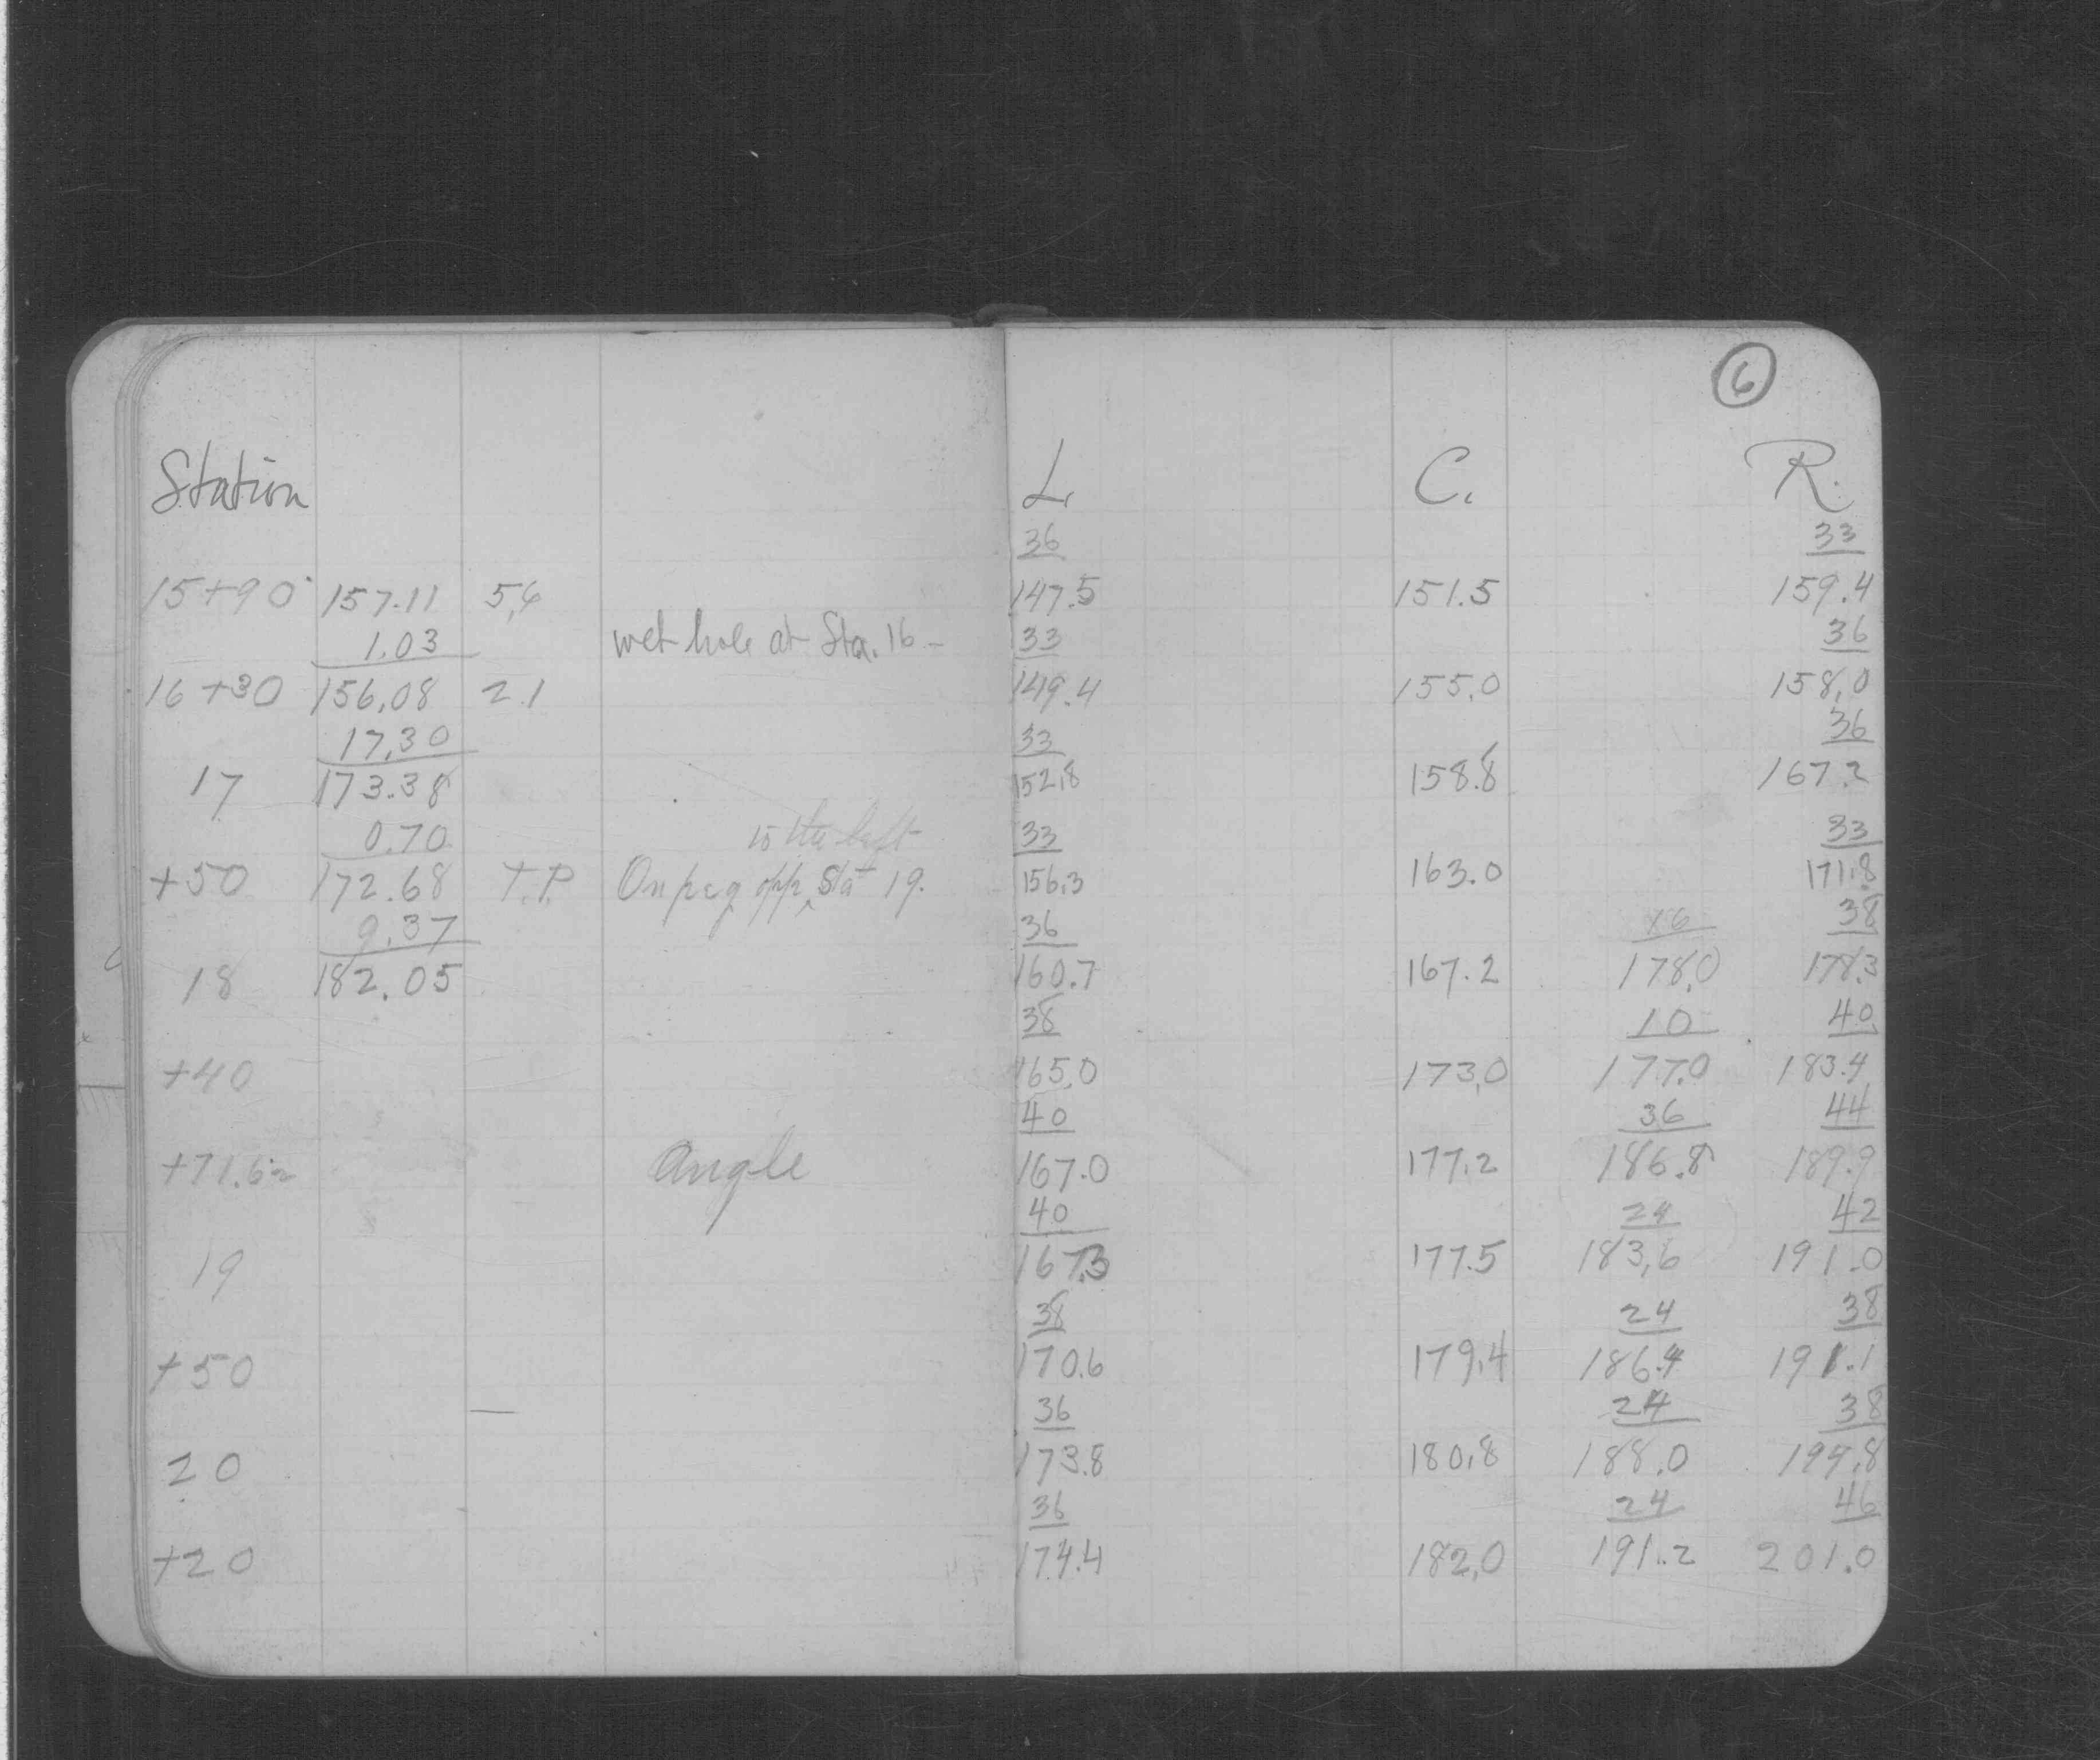 6
Station L. C. R.
36 33
15+90 157.11 5.6 147.5 151.5 159.4
1.03 wet hole at Sta. 16 - 33 36
16+30 156.08 2.1 149.4 155.0 158.0
17.30 33 36
17 173.38 152.8 158.8 167.2
0.70 to the left 33 33
+50 172.68 T.P. On peg opp. Sta 19. 156.3 163.0 171.8
9.37 36 38
18 182.05 160.7 167.2 178.0 178.3
38 10 40
+40 165.0 173.0 177.0 183.4
40 36 44
+71.62 Angle 167.0 177.2 186.8 189.9
40 24 42
19 167.3 177.5 183.6 191.0
38 24 38
+50 170.6 179.4 186.4 191.1
36 24 38
20 173.8 180.8 188.0 194.8
36 24 46
+20 174.4 182.0 191.2 201.0